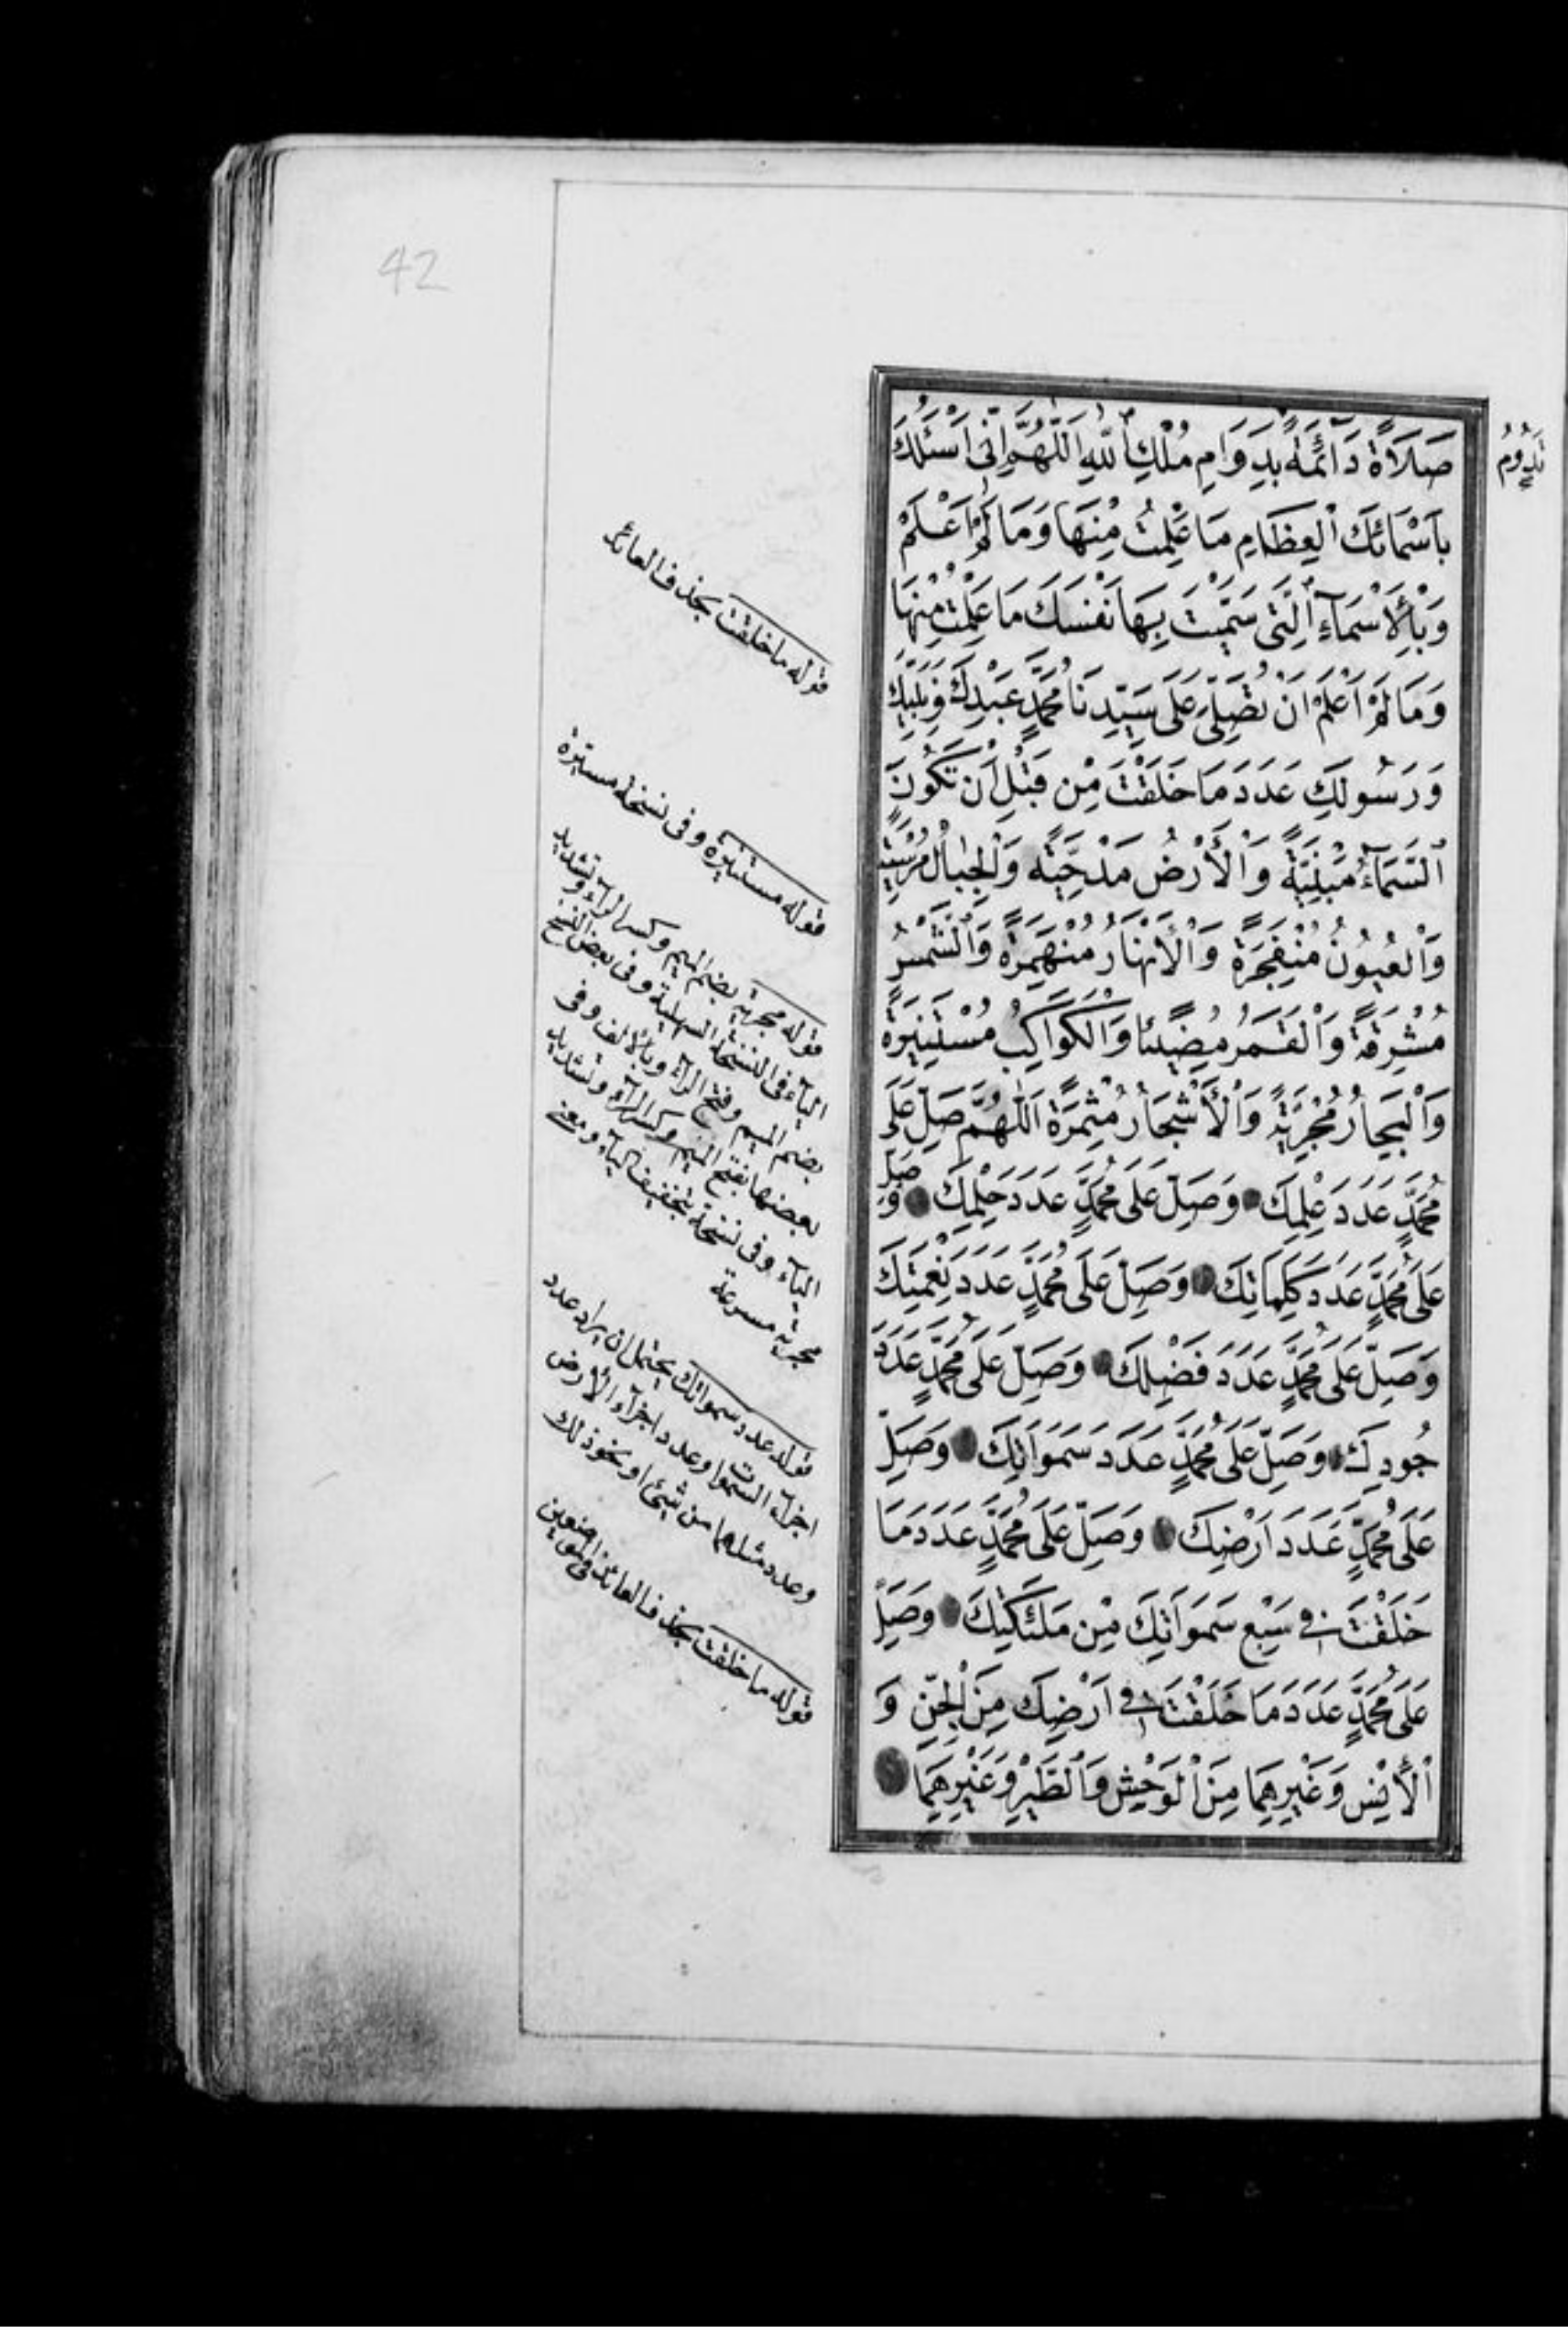 42
تَدُومُ
صَلَاةً دَائِمَةً بِدَوَامِ مُلْكِ اللّٰهِ اَللّٰهُمَّ اِنِّى اَسْئَلُكَ
بِاَسْمَائِكَ الْعِظَامِ مَا عَلِمْتُ مِنْهَا وَمَا لَمْ اَعْلَمْ
وَبِالْأَسْمَآءِ الَّتِى سَمَّيْتَ بِهَا نَفْسَكَ مَا عَلِمْتُ مِنْهَا
وَمَا لَمْ اَعْلَمْ اَنْ تُصَلِّىَ عَلَى سَيِّدِنَا مُحَمَّدٍ عَبْدِكَ وَنَبِيِّكَ
وَرَسُولِكَ عَدَدَ مَا خَلَقْتَ مِنْ قَبْلِ اَنْ تَكُونَ
السَّمَآءُ مَبْنِيَّةً وَالْأَرْضُ مَدْحِيَّةً وَالْجِبَالُ مُرْسِيَةً
وَالْعُيُونُ مُنْفَجِرَةً وَالْأَنْهَارُ مُنْهَمِرَةً وَالشَّمْسُ
مُشْرِقَةً وَالْقَمَرُ مُضِيئًا وَالْكَوَاكِبُ مُسْتَنِيرَةً
وَالْبِحَارُ مُجْرِيَّةً وَالْأَشْجَارُ مُثْمِرَةً اَللّٰهُمَّ صَلِّ عَلَى
مُحَمَّدٍ عَدَدَ عِلْمِكَ وَصَلِّ عَلَى مُحَمَّدٍ عَدَدَ حِلْمِكَ وَصَلِّ
عَلَى مُحَمَّدٍ عَدَدَ كَلِمَاتِكَ وَصَلِّ عَلَى مُحَمَّدٍ عَدَدَ نِعْمَتِكَ
وَصَلِّ عَلَى مُحَمَّدٍ عَدَدَ فَضْلِكَ وَصَلِّ عَلَى مُحَمَّدٍ عَدَدَ
جُودِكَ وَصَلِّ عَلَى مُحَمَّدٍ عَدَدَ سَمَوَاتِكَ وَصَلِّ
عَلَى مُحَمَّدٍ عَدَدَ اَرْضِكَ وَصَلِّ عَلَى مُحَمَّدٍ عَدَدَ مَا
خَلَقْتَ فِى سَبْعِ سَمَوَاتِكَ مِنْ مَلٰئِكَتِكَ وَصَلِّ
عَلَى مُحَمَّدٍ عَدَدَ مَا خَلَقْتَ فِى اَرْضِكَ مِنَ الْجِنِّ وَ
الْأِنْسِ وَغَيْرِهِمَا مِنَ الْوَحْشِ وَالطَّيْرِ وَغَيْرِهِمَا
قوله ما خلقت بحذف العائد
قوله مستنيرة وفى نسخة مستيرة
قوله مجرية بضم الميم وكسر الرآء وتشديد
اليآء فى النسخة السهلية وفى بعض النسخ
بضم الميم وفتح الرآء وبالالف وفى
بعضها بفتح الميم وكسر الرآء وتشديد
اليآء وفى نسخة بتخفيف اليآء ومعنى
مجرية مسرعة
قوله عدد سمواتك يحتمل ان يراد عدد
اجزآء السموات وعدد اجزآء الأرض
وعدد مثلهما من شيئ او نحو ذلك
قوله ما خلقت بحذف العائد